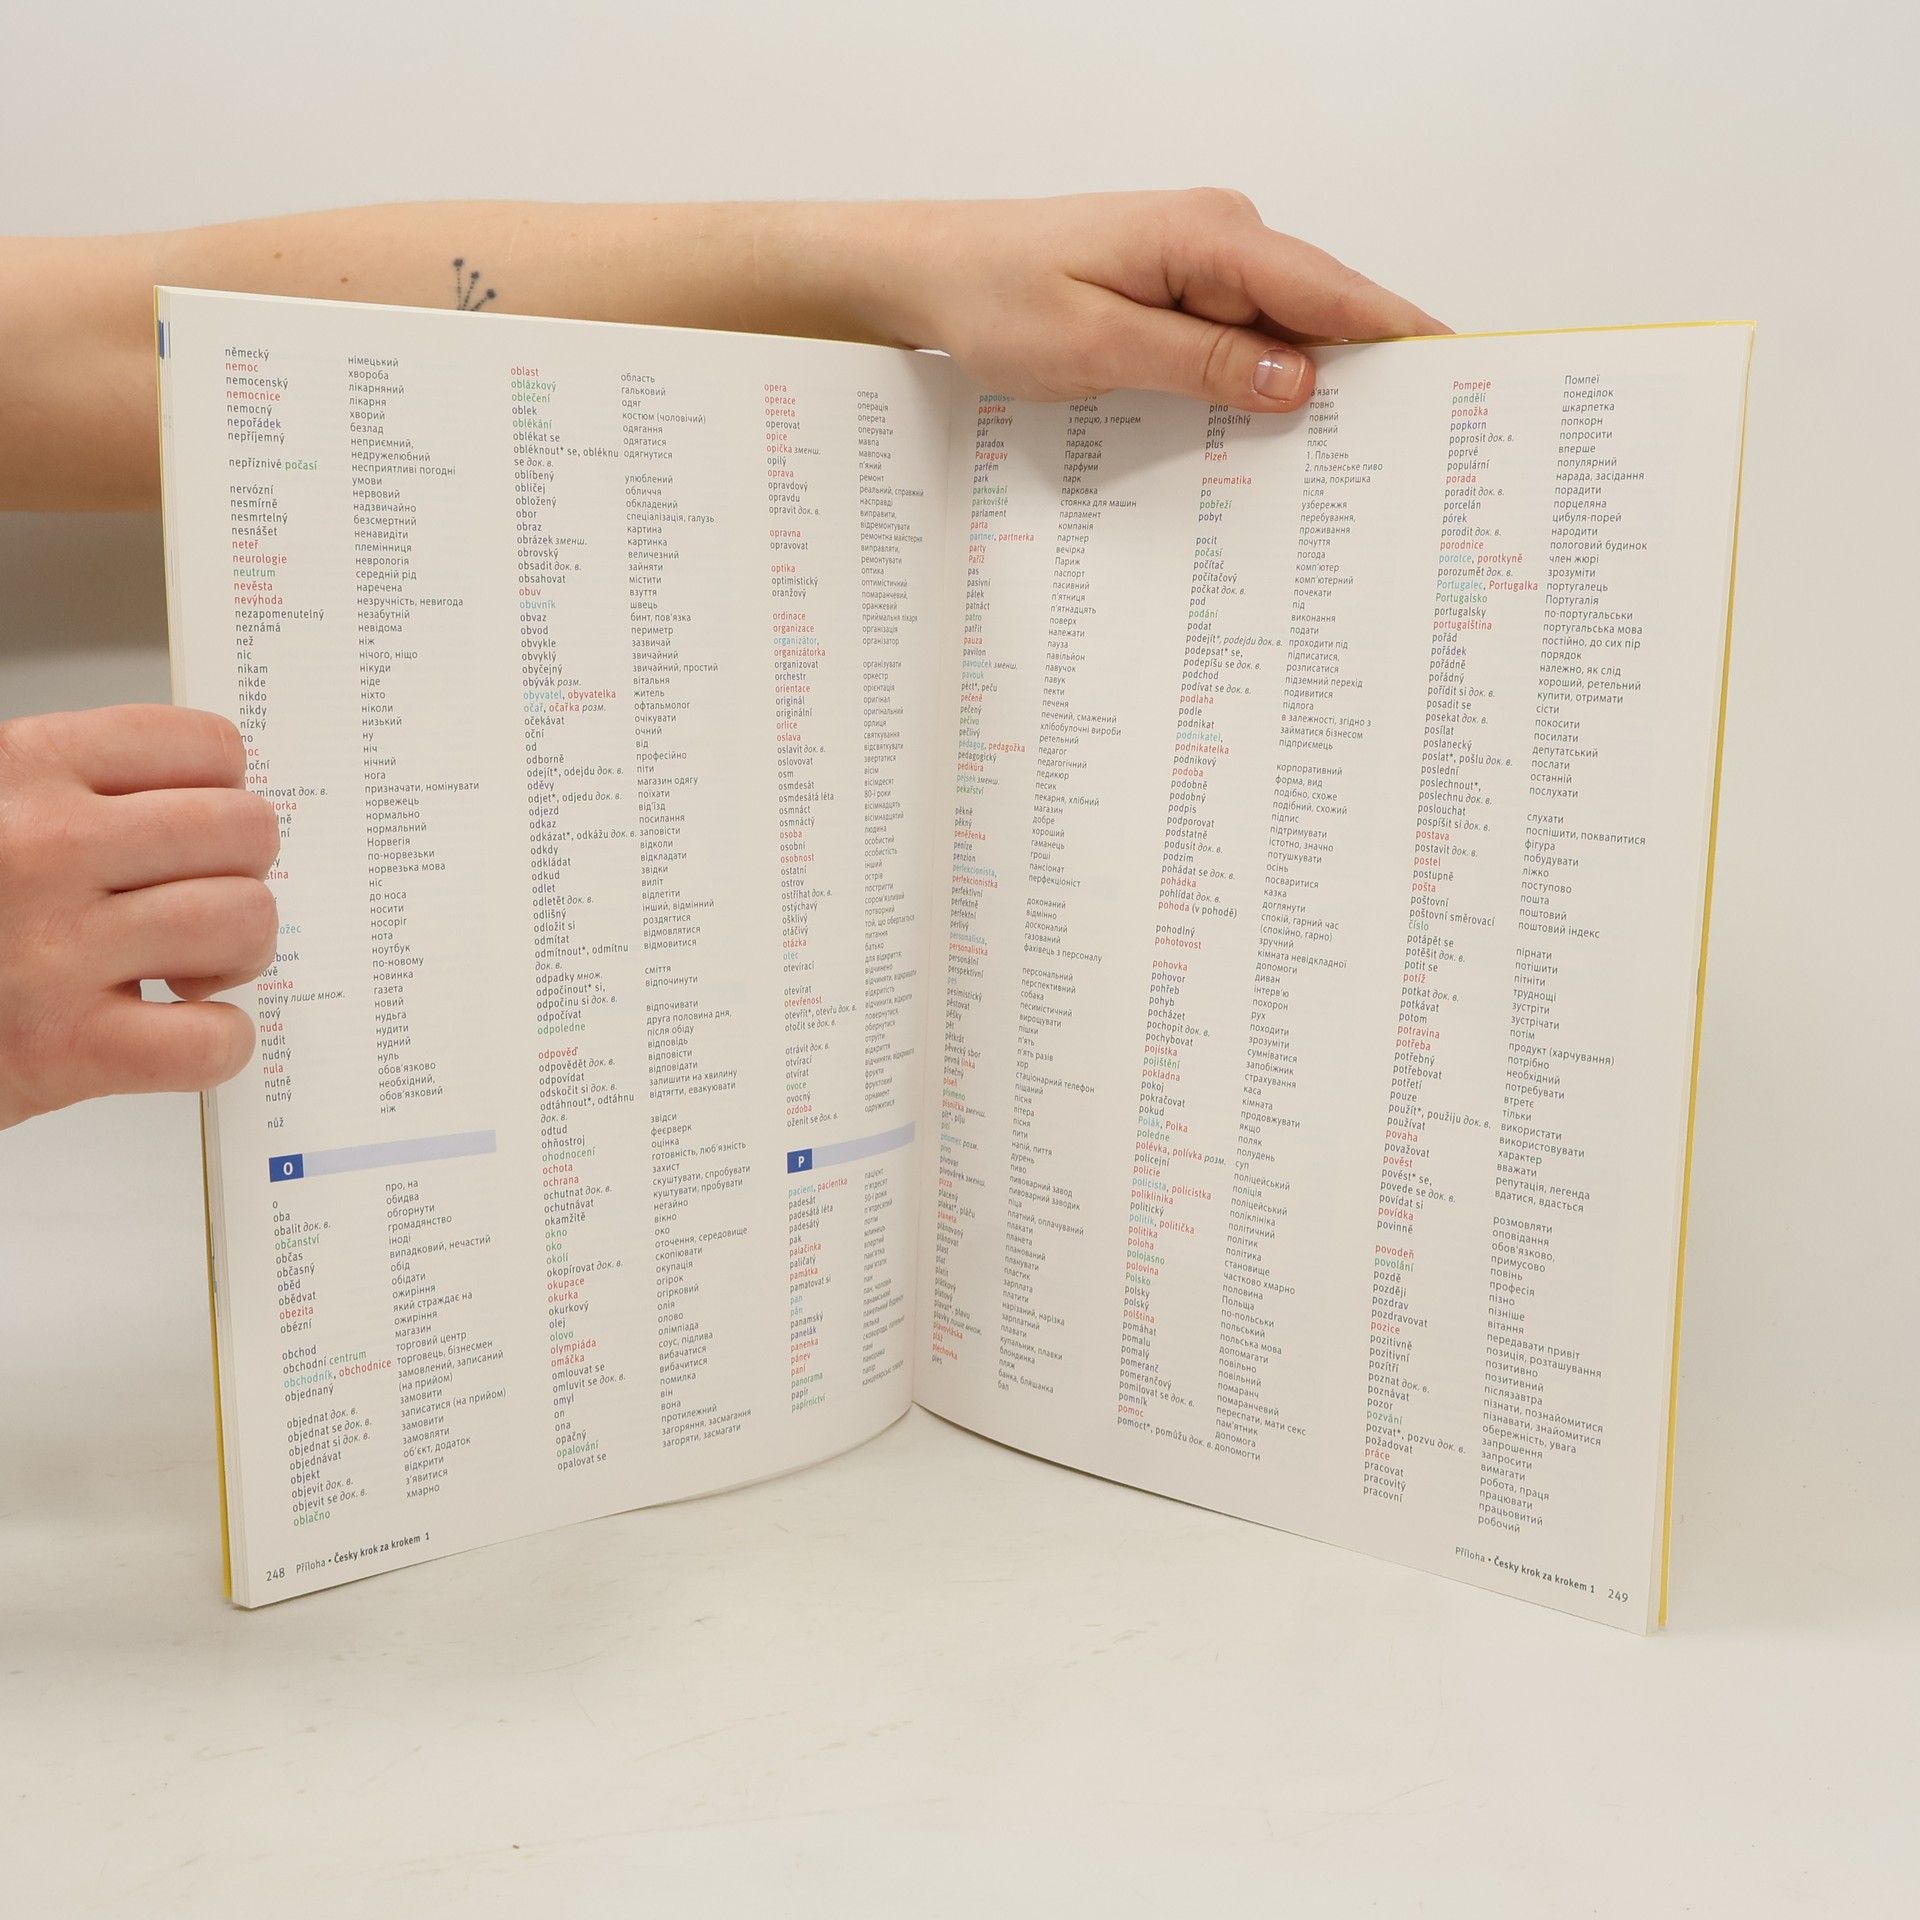 německý німецький
nemoc хвороба
nemocenský лікарняний
nemocnice лікарня
nemocný хворий
nepořádek безлад
nepříjemný неприємний,
недружелюбний
nepříznivé počasí несприятливі погодні
умови
nervózní нервовий
nesmírně надзвичайно
nesmrtelný безсмертний
nesnášet ненавидіти
neteř племінниця
neurologie неврологія
neutrum середній рід
nevěsta наречена
nevýhoda незручність, невигода
nezapomenutelný незабутній
neznámá невідома
než ніж
nic нічого, ніщо
nikam нікуди
nikde ніде
nikdo ніхто
nikdy ніколи
nízký низький
ну
ніч
нічний
нога
призначати, номінувати
норвежець
нормально
нормальний
Норвегія
по-норвезьки
норвезька мова
ніс
до носа
носити
носоріг
нота
ноутбук
по-новому
novinka новинка
noviny лише множ. газета
nový новий
nuda нудьга
nudit нудити
nudný нудний
nula нуль
nutně обов'язково
nutný необхідний,
обов'язковий
nůž ніж
O
o про, на
oba обидва
obalit док. в. обгорнути
občanství громадянство
občas іноді
občasný випадковий, нечастий
oběd обід
obědvat обідати
obezita ожиріння
obézní який страждає на
ожиріння
obchod магазин
obchodní centrum торговий центр
obchodník, obchodnice торговець, бізнесмен
objednaný замовлений, записаний
(на прийом)
objednat док. в. замовити
objednat se док. в. записатися (на прийом)
objednat si док. в. замовити
objednávat замовляти
objekt об'єкт, додаток
objevit док. в. відкрити
objevit se док. в. з'явитися
oblačno хмарно
oblast область
oblázkový гальковий
oblečení одяг
oblek костюм (чоловічий)
oblékání одягання
oblékat se одягатися
obléknout* se, obléknu одягнутися
se док. в.
oblíbený улюблений
obličej обличчя
obložený обкладений
obor спеціалізація, галузь
obraz картина
obrázek зменш. картинка
obrovský величезний
obsadit док. в. зайняти
obsahovat містити
obuv взуття
obuvník швець
obvaz бинт, пов'язка
obvod периметр
obvykle зазвичай
obvyklý звичайний
obyčejný звичайний, простий
obývák розм. вітальня
obyvatel, obyvatelka житель
očař, očařka розм. офтальмолог
očekávat очікувати
oční очний
od від
odborně професійно
odejít*, odejdu док. в. піти
oděvy магазин одягу
odjet*, odjedu док. в. поїхати
odjezd від'їзд
odkaz посилання
odkázat*, odkážu док. в. заповісти
odkdy відколи
odkládat відкладати
odkud звідки
odlet виліт
odletět док. в. відлетіти
odlišný інший, відмінний
odložit si роздягтися
odmítat відмовлятися
odmítnout*, odmítnu відмовитися
док. в.
odpadky множ. сміття
odpočinout* si, відпочинути
odpočinu si док. в.
odpočívat відпочивати
odpoledne друга половина дня,
після обіду
odpověď відповідь
odpovědět док. в. відповісти
odpovídat відповідати
odskočit si док. в. залишити на хвилину
odtáhnout*, odtáhnu відтягти, евакуювати
док. в.
odtud звідси
ohňostroj феєрверк
ohodnocení оцінка
ochota готовність, люб'язність
ochrana захист
ochutnat док. в. скуштувати, спробувати
ochutnávat куштувати, пробувати
okamžitě негайно
okno вікно
oko око
okolí оточення, середовище
okopírovat док. в. скопіювати
okupace окупація
okurka огірок
okurkový огірковий
olej олія
olovo олово
olympiáda олімпіада
omáčka соус, підлива
omlouvat se вибачатися
omluvit se док. в. вибачитися
omyl помилка
on він
ona вона
opačný протилежний
opalování загоряння, засмагання
opalovat se загоряти, засмагати
opera опера
operace операція
opereta оперета
operovat оперувати
opice мавпа
opička зменш. мавпочка
opilý п'яний
oprava ремонт
opravdový реальний, справжній
opravdu насправді
opravit док. в. виправити,
відремонтувати
opravna ремонтна майстерня
opravovat виправляти,
ремонтувати
optika оптика
optimistický оптимістичний
oranžový помаранчевий,
оранжевий
ordinace приймальня лікаря
organizace організація
organizátor, організатор
organizátorka
organizovat організувати
orchestr оркестр
orientace орієнтація
originál оригінал
originální оригінальний
orlice орлиця
oslava святкування
oslavit док. в. відсвяткувати
oslovovat звертатися
osm вісім
osmdesát вісімдесят
osmdesátá léta 80-і роки
osmnáct вісімнадцять
osmnáctý вісімнадцятий
osoba людина
osobní особистий
osobnost особистість
ostatní інший
ostrov острів
ostříhat док. в. постригти
ostýchavý сором'язливий
ošklivý потворний
otáčivý той, що обертається
otázka питання
otec батько
otevírací для відкриття
otevírat
otevřenost
otevřít*, otevřu док. в.
otočit se док. в.
otrávit док. в.
otvírací
otvírat
ovoce фрукти
ovocný фруктовий
ozdoba орнамент
oženit se док. в. одружитися
P
pacient, pacientka пацієнт
padesát п'ятдесят
padesátá léta 50-і роки
padesátý п'ятдесятий
pak потім
palačinka млинець
paličatý впертий
památka пам'ятка
pamatovat si пам'ятати
pan пан
pán пан, чоловік
panamský панамський
panelák панельний будинок
panenka лялька
pánev
paní пані
panorama панорама
papír папір
papírnictví канцелярські товари
248 Příloha • Česky krok za krokem 1
paprika перець
paprikový з перцю, з перцем
pár пара
paradox парадокс
Paraguay Парагвай
parfém парфуми
park парк
parkování парковка
parkoviště стоянка для машин
parlament парламент
parta компанія
partner, partnerka партнер
party вечірка
Paříž Париж
pas паспорт
pasivní пасивний
pátek п'ятниця
patnáct п'ятнадцять
patro поверх
patřit належати
pauza пауза
pavilon павільйон
pavouček зменш. павучок
pavouk павук
péct*, peču пекти
pečeně печеня
pečený печений, смажений
pečivo хлібобулочні вироби
pečlivý ретельний
pedagog, pedagožka педагог
pedagogický педагогічний
pedikúra педикюр
pejsek зменш. песик
pekařství пекарня, хлібний
магазин
pěkně добре
pěkný хороший
peněženka гаманець
peníze гроші
penzion пансіонат
perfekcionista, перфекціоніст
perfekcionistka
perfektivní доконаний
perfektně відмінно
perfektní досконалий
perlivý газований
personalista, фахівець з персоналу
personalistka
personální персональний
perspektivní перспективний
pes собака
pesimistický песимістичний
pěstovat вирощувати
pěšky пішки
pět п'ять
pětkrát п'ять разів
pěvecký sbor хор
pevná linka стаціонарний телефон
písečný піщаний
píseň пісня
písmeno літера
písnička зменш. пісня
pít*, piju пити
pití напій, пиття
pitomec розм. дурень
pivo пиво
pivovar пивоварний завод
pivovárek зменш. пивоварний заводик
pizza піца
placený платний, оплачуваний
plakat*, pláču плакати
planeta планета
plánovaný планований
plánovat планувати
plast пластик
plat зарплата
platit платити
plátkový нарізаний, нарізка
platový зарплатний
plavat*, plavu плавати
plavky лише множ. купальник, плавки
plavovláska блондинка
pláž пляж
plechovka банка, бляшанка
ples бал
plno повно
plnoštíhlý повний
plný повний
plus плюс
Plzeň 1. Пльзень
2. пльзенське пиво
pneumatika шина, покришка
po після
pobřeží узбережжя
pobyt перебування,
проживання
pocit почуття
počasí погода
počítač комп'ютер
počítačový комп'ютерний
počkat док. в. почекати
pod під
podání виконання
podat подати
podejít*, podejdu док. в. проходити під
podepsat* se, підписатися,
podepíšu se док. в. розписатися
podchod підземний перехід
podívat se док. в. подивитися
podlaha підлога
podle в залежності, згідно з
podnikat займатися бізнесом
podnikatel, підприємець
podnikatelka
podnikový корпоративний
podoba форма, вид
podobně подібно, схоже
podobný подібний, схожий
podpis підпис
podporovat підтримувати
podstatně істотно, значно
podusit док. в. потушкувати
podzim осінь
pohádat se док. в. посваритися
pohádka казка
pohlídat док. в. доглянути
pohoda (v pohodě) спокій, гарний час
(спокійно, гарно)
pohodlný зручний
pohotovost кімната невідкладної
допомоги
pohovka диван
pohovor інтерв'ю
pohřeb похорон
pohyb рух
pocházet походити
pochopit док. в. зрозуміти
pochybovat сумніватися
pojistka запобіжник
pojištění страхування
pokladna каса
pokoj кімната
pokračovat продовжувати
pokud якщо
Polák, Polka поляк
poledne полудень
polévka, polívka розм. суп
policejní поліцейський
policie поліція
policista, policistka поліцейський
poliklinika поліклініка
politický політичний
politik, politička політик
politika політика
poloha становище
polojasno частково хмарно
polovina половина
Polsko Польща
polsky по-польськи
polský польський
polština польська мова
pomáhat допомагати
pomalu повільно
pomalý повільний
pomeranč помаранч
pomerančový помаранчевий
pomilovat se док. в. переспати, мати секс
pomník пам'ятник
pomoc допомога
pomoct*, pomůžu док. в. допомогти
Pompeje Помпеї
pondělí понеділок
ponožka шкарпетка
popkorn попкорн
poprosit док. в. попросити
poprvé вперше
populární популярний
porada нарада, засідання
poradit док. в. порадити
porcelán порцеляна
pórek цибуля-порей
porodit док. в. народити
porodnice пологовий будинок
porotce, porotkyně член жюрі
porozumět док. в. зрозуміти
Portugalec, Portugalka португалець
Portugalsko Португалія
portugalsky по-португальськи
portugalština португальська мова
pořád постійно, до сих пір
pořádek порядок
pořádně належно, як слід
pořádný хороший, ретельний
pořídit si док. в. купити, отримати
posadit se сісти
posekat док. в. покосити
posílat посилати
poslanecký депутатський
poslat*, pošlu док. в. послати
poslední останній
poslechnout*, послухати
poslechnu док. в.
poslouchat слухати
pospíšit si док. в. поспішити, поквапитися
postava фігура
postavit док. в. побудувати
postel ліжко
postupně поступово
pošta пошта
poštovní поштовий
poštovní směrovací поштовий індекс
číslo
potápět se пірнати
potěšit док. в. потішити
potit se пітніти
potíž труднощі
potkat док. в. зустріти
potkávat зустрічати
potom потім
potravina продукт (харчування)
potřeba потрібно
potřebný необхідний
potřebovat потребувати
potřetí втретє
pouze тільки
použít*, použiju док. в. використати
používat використовувати
povaha характер
považovat вважати
pověst репутація, легенда
povést* se, вдатися, вдасться
povede se док. в.
povídat si розмовляти
povídka оповідання
povinně обов'язково,
примусово
povodeň повінь
povolání професія
pozdě пізно
později пізніше
pozdrav вітання
pozdravovat передавати привіт
pozice позиція, розташування
pozitivně позитивно
pozitivní позитивний
pozítří післязавтра
poznat док. в. пізнати, познайомитися
poznávat пізнавати, знайомитися
pozor обережність, увага
pozvání запрошення
pozvat*, pozvu док. в. запросити
požadovat вимагати
práce робота, праця
pracovat працювати
pracovitý працьовитий
pracovní робочий
Příloha • Česky krok za krokem 1 249